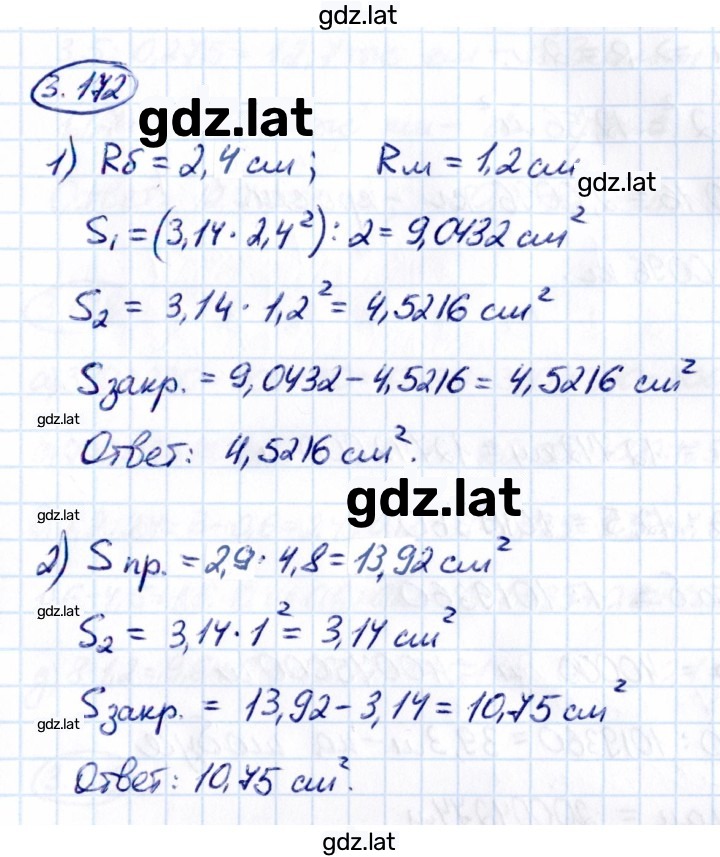 gdz.lat
3.172
gdz.lat
1) Rб = 2,4 см; Rм = 1,2 см
gdz.lat
S₁ = (3,14 · 2,4²) : 2 = 9,0432 см²
S₂ = 3,14 · 1,2² = 4,5216 см²
Sзакр. = 9,0432 – 4,5216 = 4,5216 см²
gdz.lat
Ответ: 4,5216 см².
gdz.lat
gdz.lat
2) Sпр. = 2,9 · 4,8 = 13,92 см²
gdz.lat
S₂ = 3,14 · 1² = 3,14 см²
Sзакр. = 13,92 – 3,14 = 10,75 см²
gdz.lat
Ответ: 10,75 см².
gdz.lat